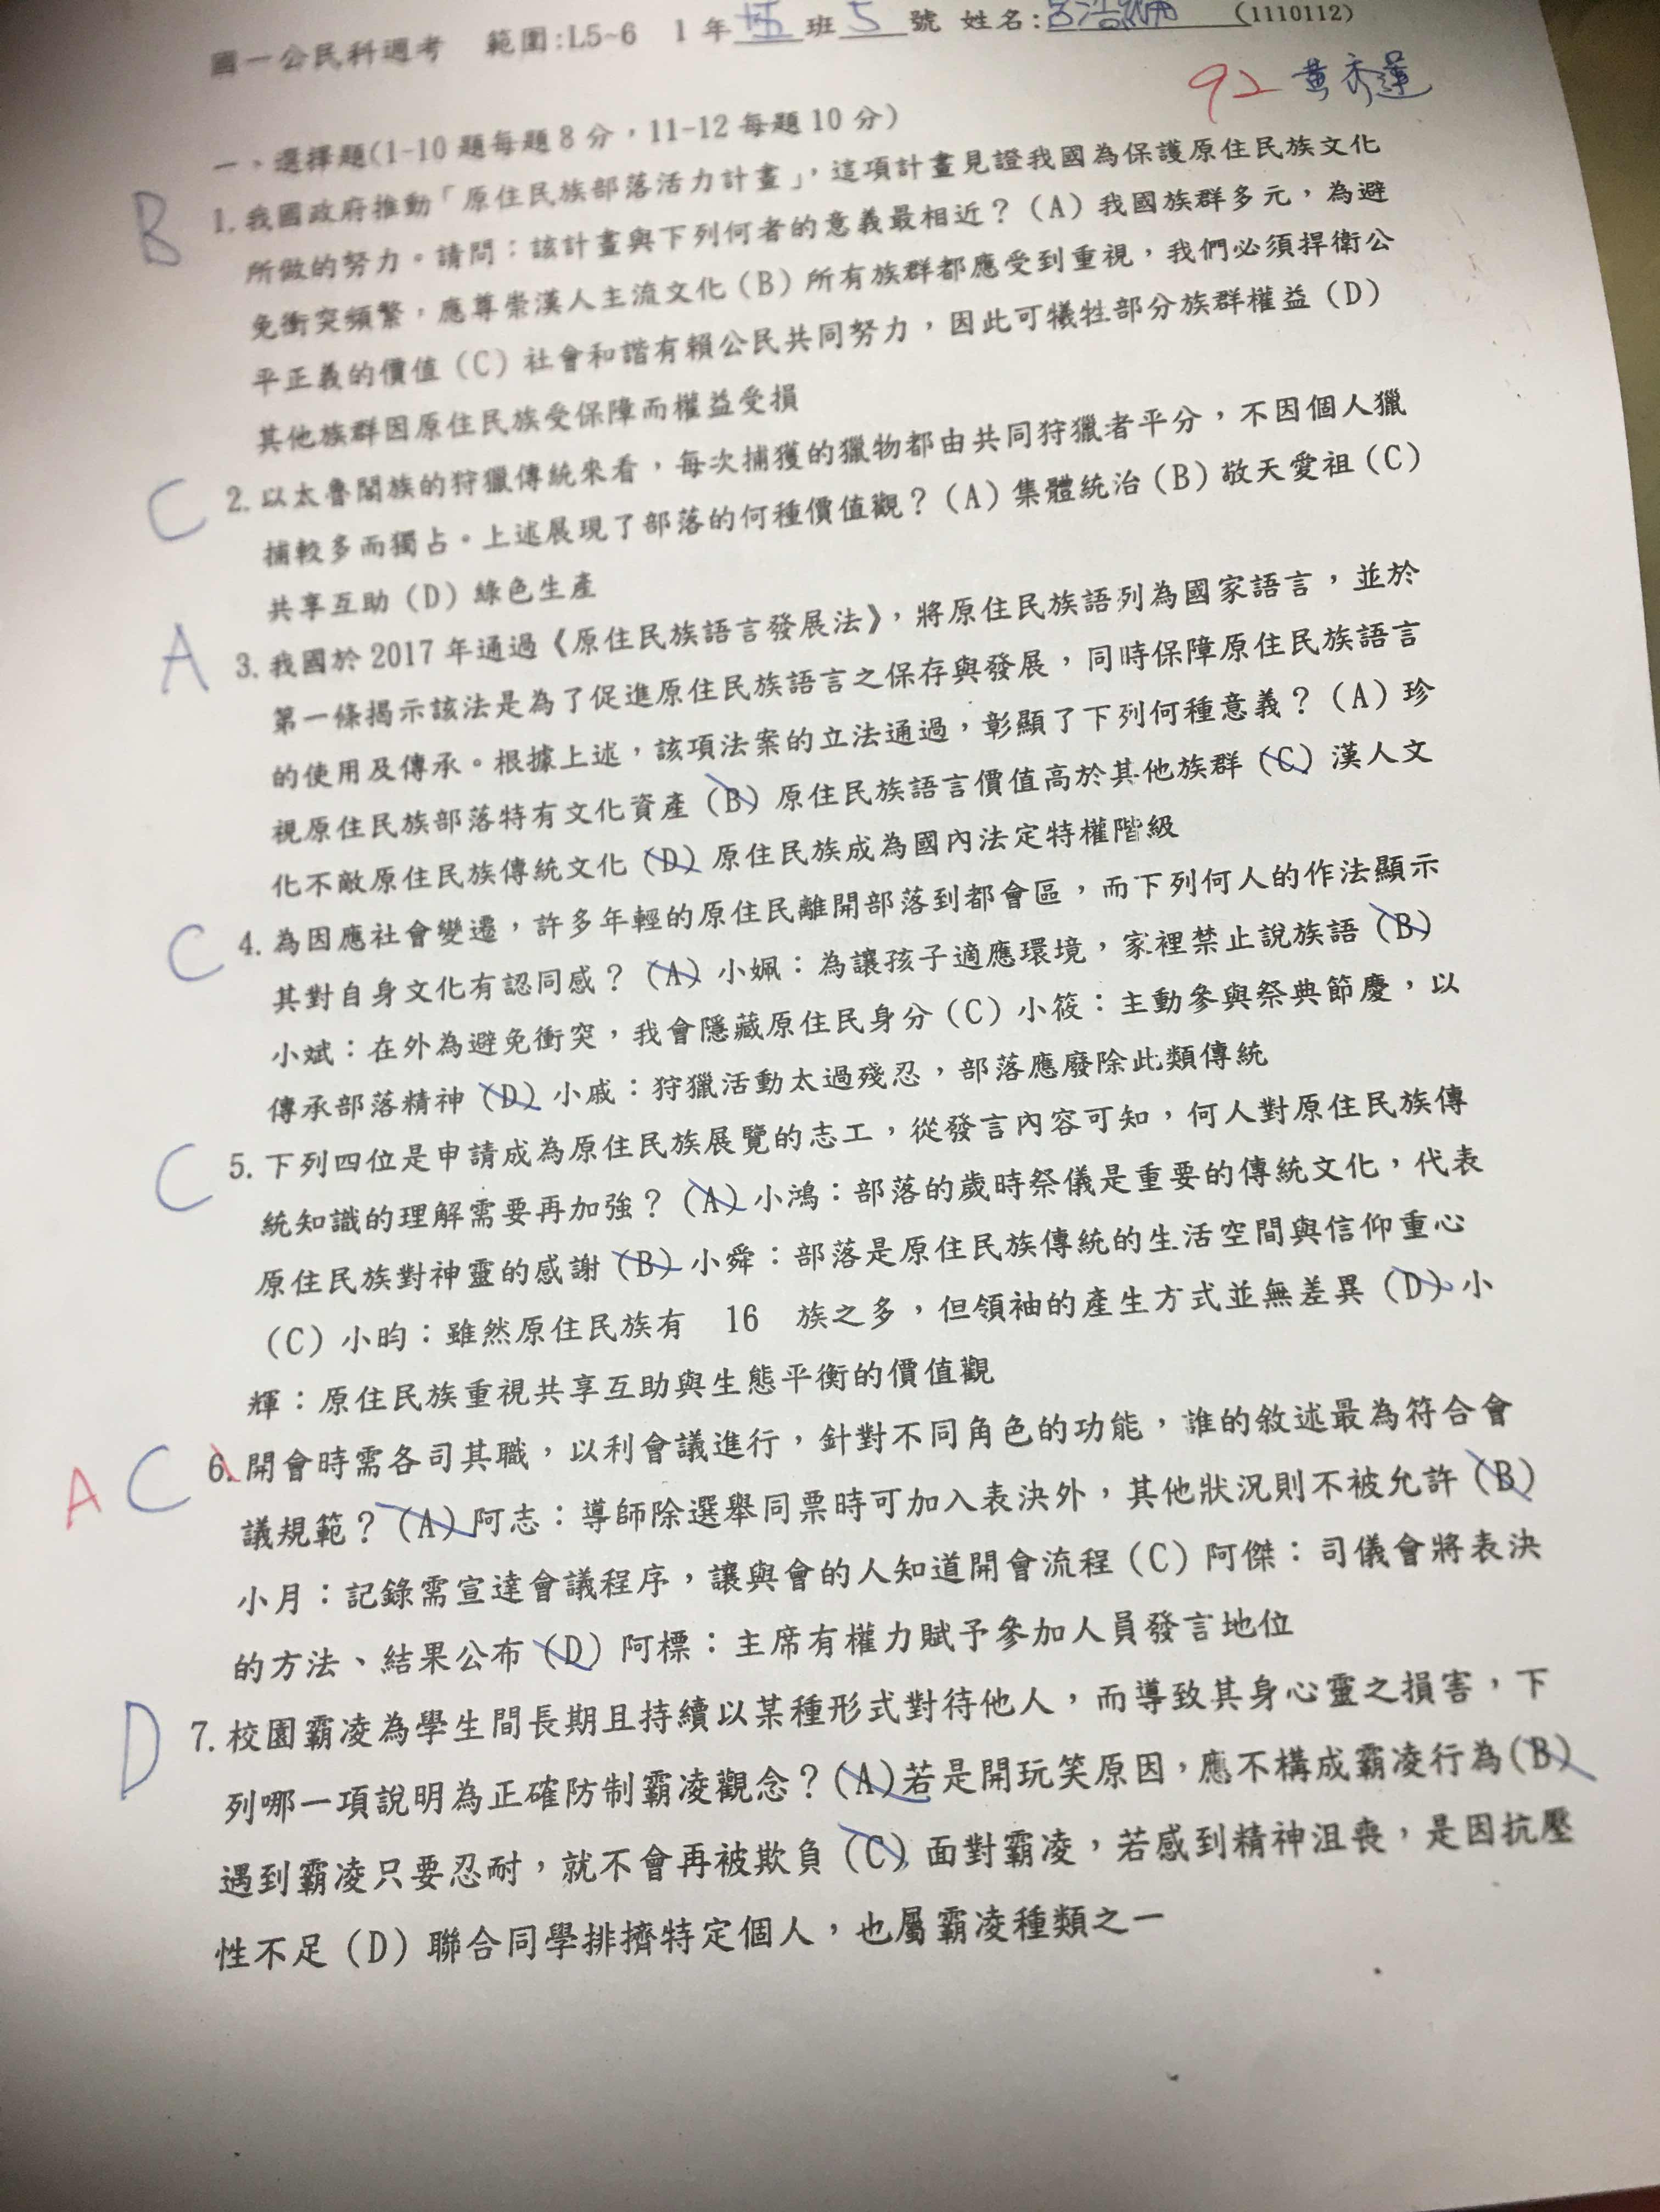 國一公民科週考 範圍:L5~6 1年伍班5號 姓名: (1110112)
92 黃秀蓮
一、選擇題(1-10題每題8分，11-12每題10分)
B 1.我國政府推動「原住民族部落活力計畫」，這項計畫見證我國為保護原住民族文化
所做的努力。請問：該計畫與下列何者的意義最相近？(A)我國族群多元，為避
免衝突頻繁，應尊崇漢人主流文化(B)所有族群都應受到重視，我們必須捍衛公
平正義的價值(C)社會和諧有賴公民共同努力，因此可犧牲部分族群權益(D)
其他族群因原住民族受保障而權益受損
C 2.以太魯閣族的狩獵傳統來看，每次捕獲的獵物都由共同狩獵者平分，不因個人獵
捕較多而獨占。上述展現了部落的何種價值觀？(A)集體統治(B)敬天愛祖(C)
共享互助(D)綠色生產
A 3.我國於2017年通過《原住民族語言發展法》，將原住民族語列為國家語言，並於
第一條揭示該法是為了促進原住民族語言之保存與發展，同時保障原住民族語言
的使用及傳承。根據上述，該項法案的立法通過，彰顯了下列何種意義？(A)珍
視原住民族部落特有文化資產(B)原住民族語言價值高於其他族群(C)漢人文
化不敵原住民族傳統文化(D)原住民族成為國內法定特權階級
C 4.為因應社會變遷，許多年輕的原住民離開部落到都會區，而下列何人的作法顯示
其對自身文化有認同感？(A)小姵：為讓孩子適應環境，家裡禁止說族語(B)
小斌：在外為避免衝突，我會隱藏原住民身分(C)小筱：主動參與祭典節慶，以
傳承部落精神(D)小戚：狩獵活動太過殘忍，部落應廢除此類傳統
C 5.下列四位是申請成為原住民族展覽的志工，從發言內容可知，何人對原住民族傳
統知識的理解需要再加強？(A)小鴻：部落的歲時祭儀是重要的傳統文化，代表
原住民族對神靈的感謝(B)小舜：部落是原住民族傳統的生活空間與信仰重心
(C)小昀：雖然原住民族有 16 族之多，但領袖的產生方式並無差異(D)小
輝：原住民族重視共享互助與生態平衡的價值觀
A C 6.開會時需各司其職，以利會議進行，針對不同角色的功能，誰的敘述最為符合會
議規範？(A)阿志：導師除選舉同票時可加入表決外，其他狀況則不被允許(B)
小月：記錄需宣達會議程序，讓與會的人知道開會流程(C)阿傑：司儀會將表決
的方法、結果公布(D)阿標：主席有權力賦予參加人員發言地位
D 7.校園霸凌為學生間長期且持續以某種形式對待他人，而導致其身心靈之損害，下
列哪一項說明為正確防制霸凌觀念？(A)若是開玩笑原因，應不構成霸凌行為(B)
遇到霸凌只要忍耐，就不會再被欺負(C)面對霸凌，若感到精神沮喪，是因抗壓
性不足(D)聯合同學排擠特定個人，也屬霸凌種類之一